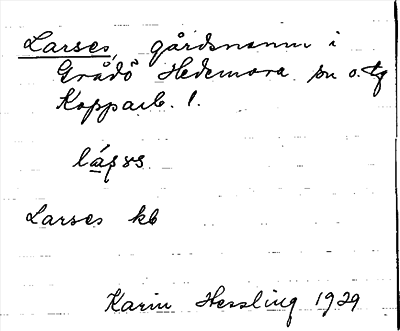 Larses, gårdsnamn i
Grådö Hedemora sn o. tg
Kopparb. l.
Larses kb
Karin Hessling 1929